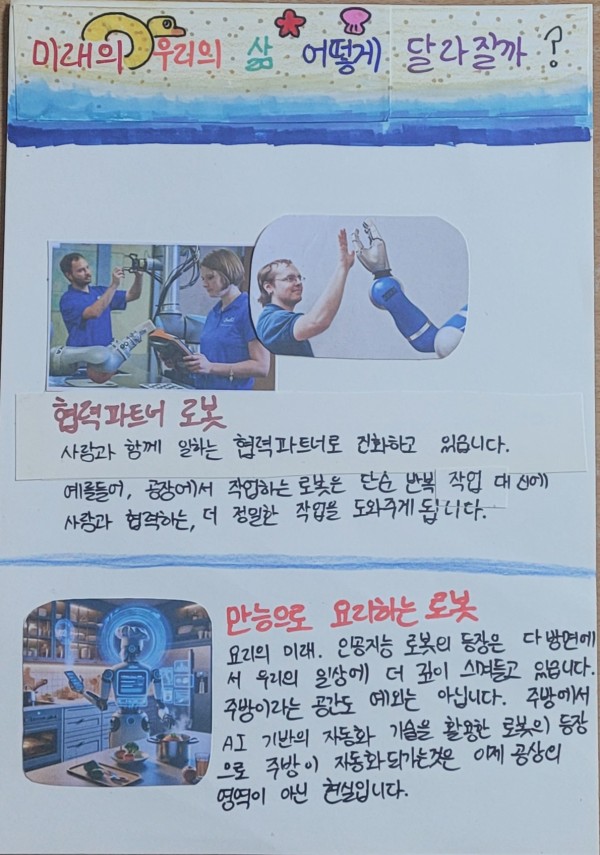 미래의 우리의 삶 어떻게 달라질까?
협력파트너 로봇
사람과 함께 일하는 협력파트너로 진화하고 있습니다.
예를들어, 공장에서 작업하는 로봇은 단순 반복 작업 대신에
사람과 협력하는, 더 정밀한 작업을 도와주게 됩니다.
만능으로 요리하는 로봇
요리의 미래. 인공지능 로봇의 등장은 다방면에
서 우리의 일상에 더 깊이 스며들고 있습니다.
주방이라는 공간도 예외는 아닙니다. 주방에서
AI 기반의 자동화 기술을 활용한 로봇의 등장
으로 주방이 자동화되가는것은 이제 공상의
영역이 아닌 현실입니다.